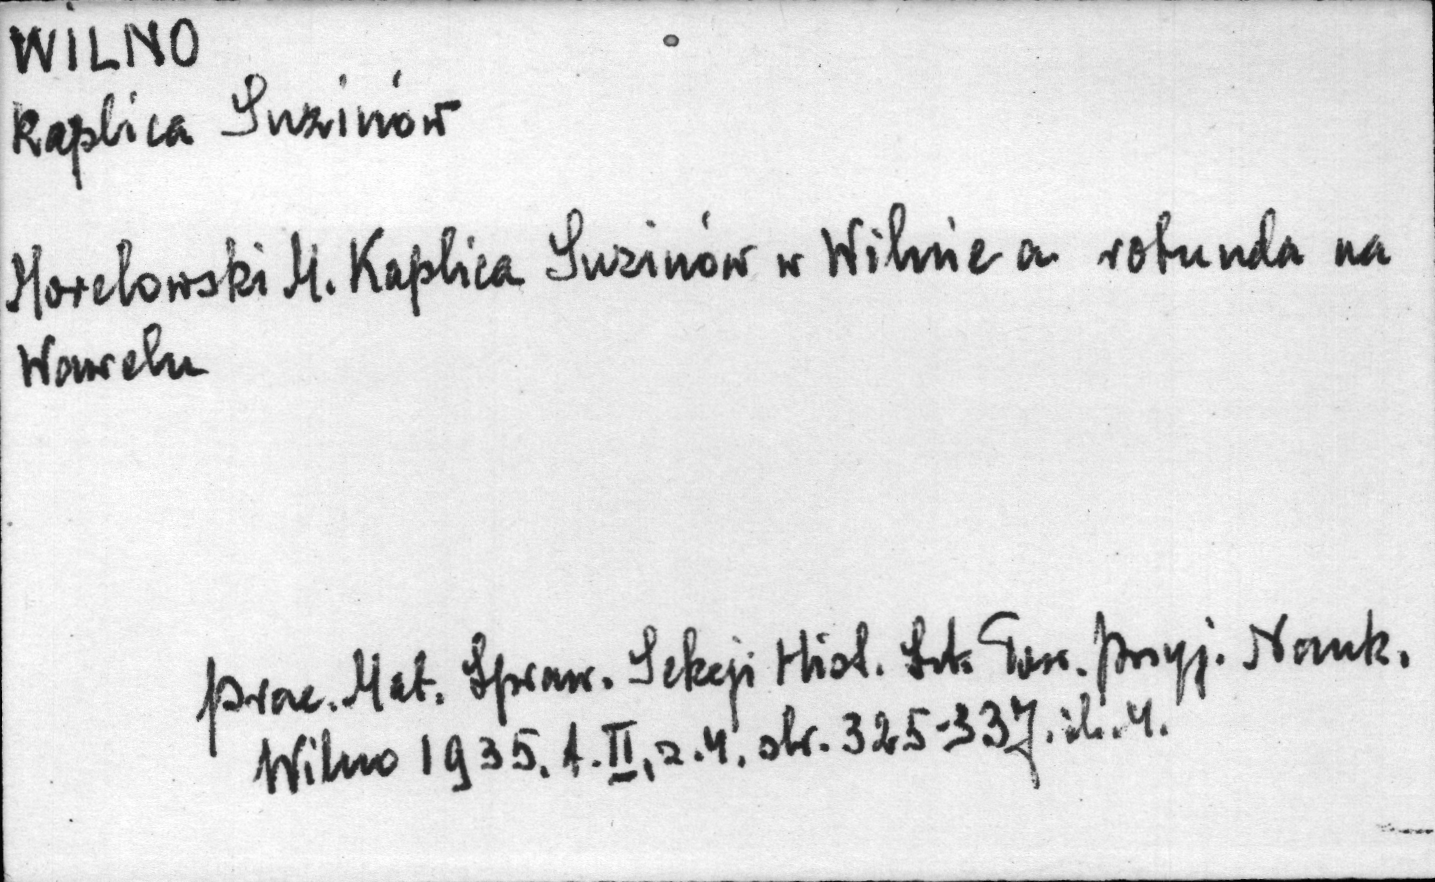 WILNO
Kaplica Suzinów
Morelowski M. Kaplica Suzinów w Wilnie a rotunda na
Wawelu
Prac. Mat. Spraw. Sekcji Hist. Szt. Tow. Przyj. Nauk.
Wilno 1935, t. II, z. 4, str. 325-337, il. 4.